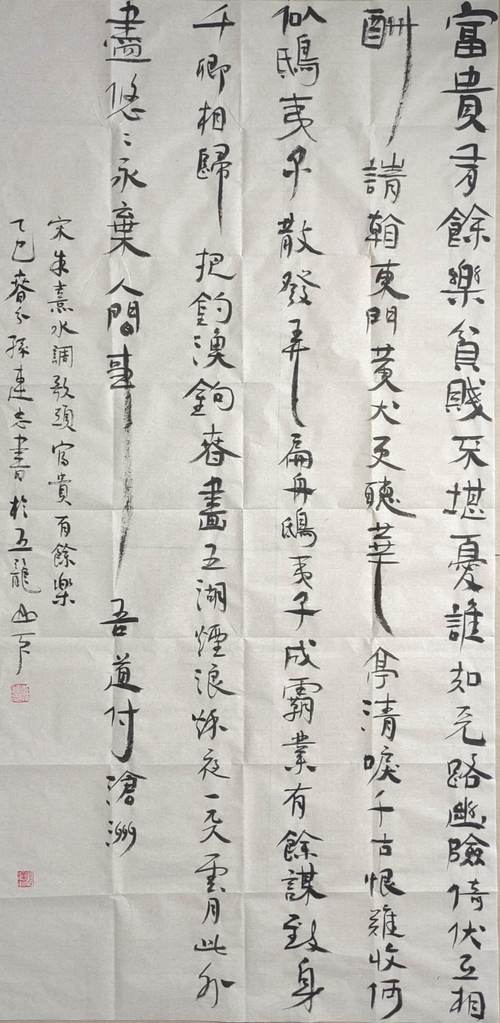 富貴有餘樂貧賤不堪憂誰知天路幽險倚伏互相
酬請看東門黃犬更聽華亭清唳千古恨難收何
似鴟夷子散發弄扁舟鴟夷子成霸業有餘謀致身
千卿相歸把釣漁鉤春晝五湖煙浪秋夜一天雲月此外
盡悠々永棄人間事吾道付滄洲
宋朱熹水調歌頭富貴有餘樂
乙巳春分孫連志書於五龍山下